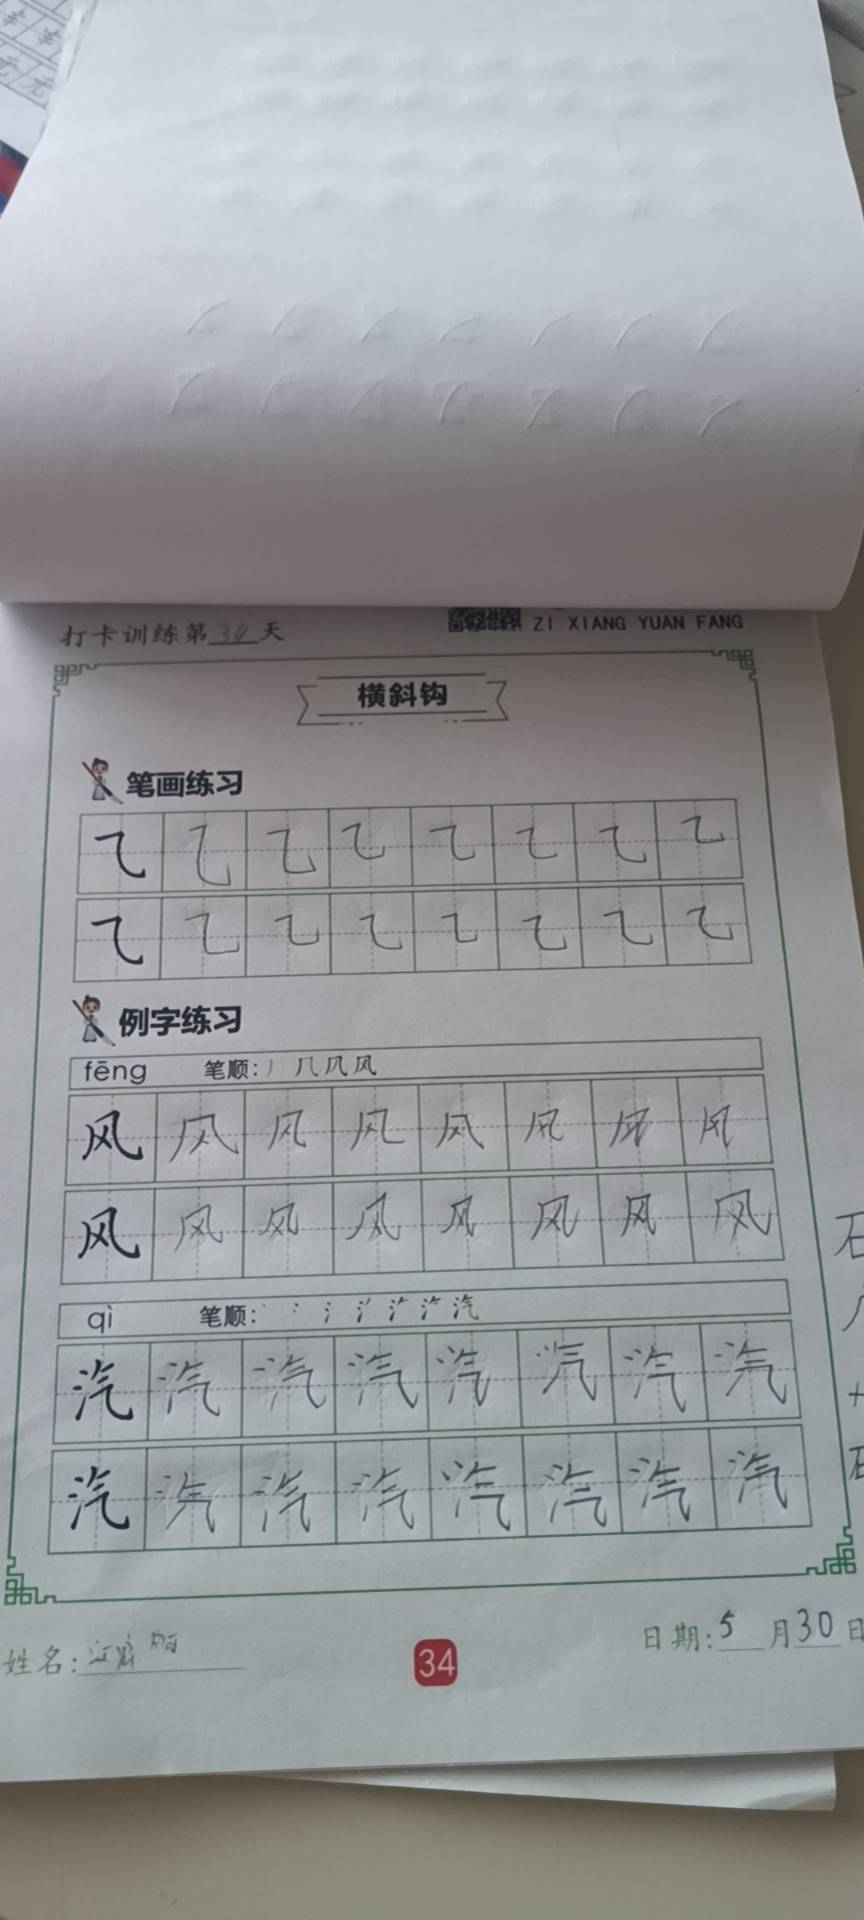 打卡训练第34天
ZI XIANG YUAN FANG
横斜钩
笔画练习
㇈ ㇈ ㇈ ㇈ ㇈ ㇈ ㇈ ㇈
㇈ ㇈ ㇈ ㇈ ㇈ ㇈ ㇈ ㇈
例字练习
fēng 笔顺: 丿 几 风 风
风 风 风 风 风 风 风 风
风 风 风 风 风 风 风 风
qì 笔顺:
汽 汽 汽 汽 汽 汽 汽 汽
汽 汽 汽 汽 汽 汽 汽 汽
姓名:
34
日期: 5 月 30 日